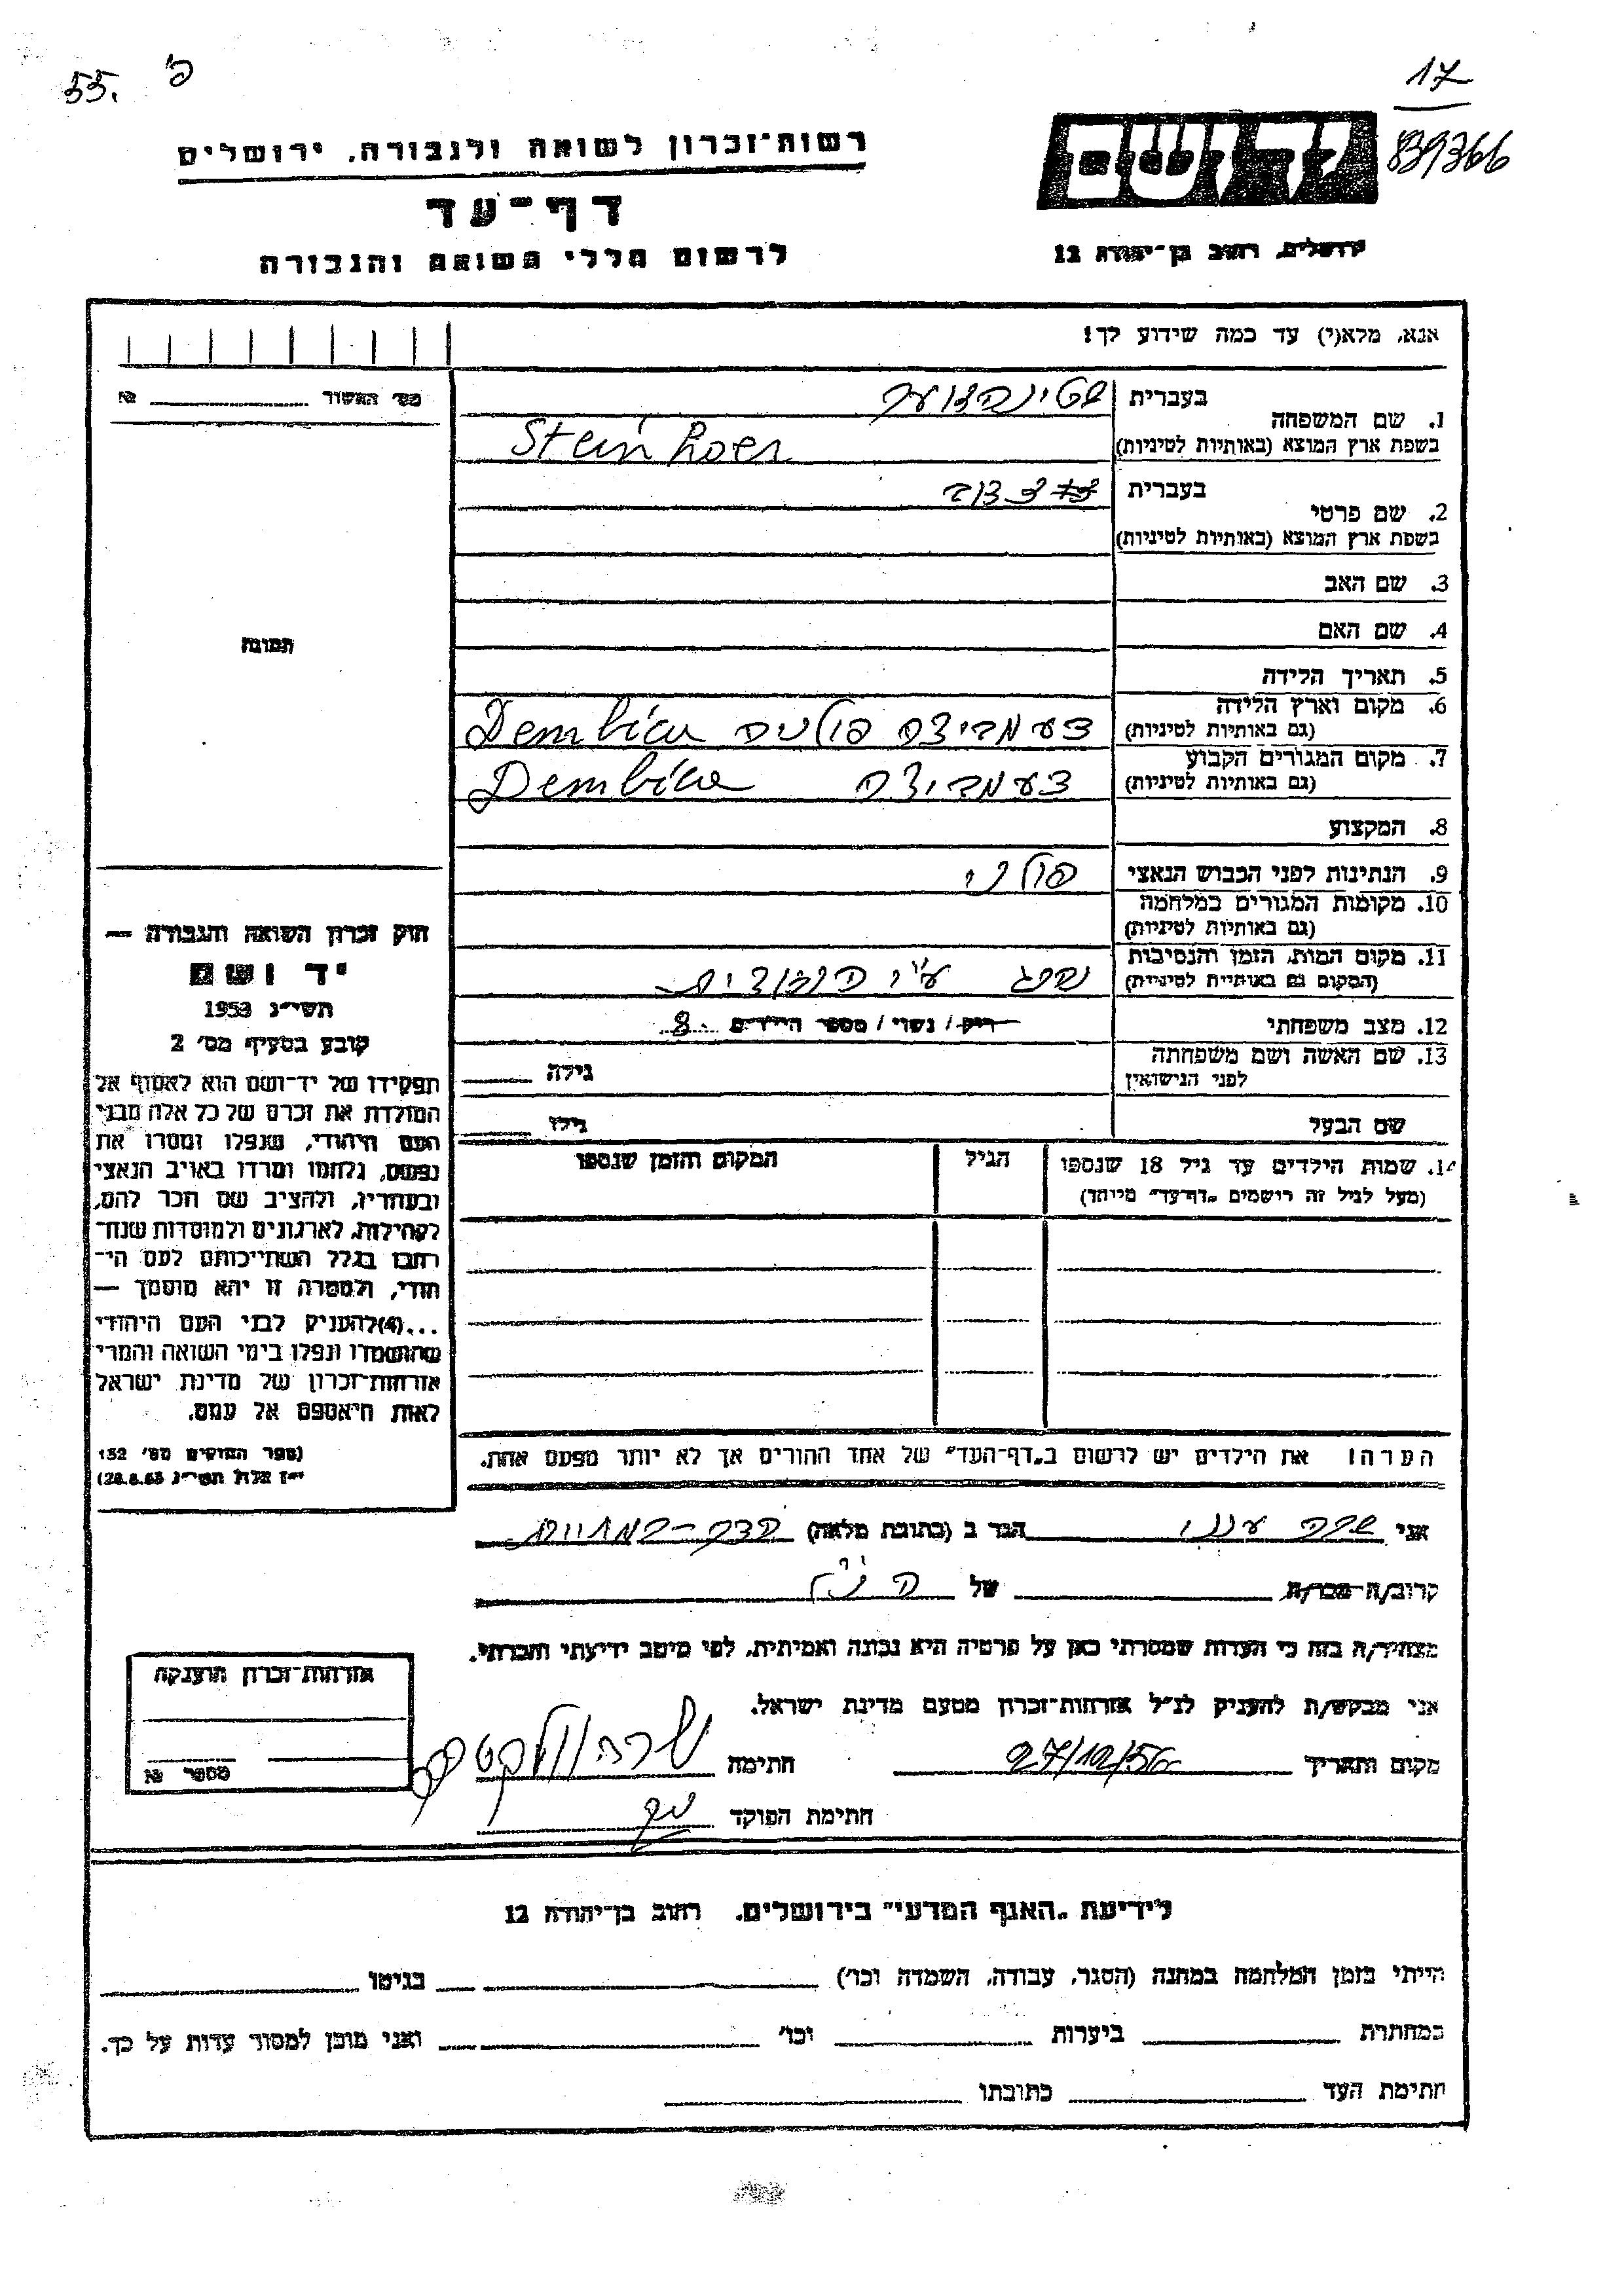 55. פ'
17
839366
רשות־זכרון לשואה ולגבורה, ירושלים
יד ושם
דף־עד
לרשום חללי השואה והגבורה
ירושלים, רחוב בן־יהודה 12
אנא, מלא(י) עד כמה שידוע לך!
מס' האשור №
1. שם המשפחה
בעברית
בשפת ארץ המוצא (באותיות לטיניות) Stein
2. שם פרטי
בעברית
בשפת ארץ המוצא (באותיות לטיניות)
3. שם האב
4. שם האם
תמונה
5. תאריך הלידה
6. מקום וארץ הלידה
(גם באותיות לטיניות) דעמביצה פולניה Dembica
7. מקום המגורים הקבוע
(גם באותיות לטיניות) דעמביצה Dembica
8. המקצוע
9. הנתינות לפני הכבוש הנאצי פולני
10. מקומות המגורים במלחמה
(גם באותיות לטיניות)
11. מקום המות, הזמן והנסיבות
(המקום גם באותיות לטיניות) ע"י
12. מצב משפחתי רוק / נשוי / מספר הילדים 8
13. שם האשה ושם משפחתה
לפני הנישואין גילה
שם הבעל גילו
14. שמות הילדים עד גיל 18 שנספו הגיל המקום והזמן שנספו
(מעל לגיל זה רושמים "דף־עד" מיוחד)
חוק זכרון השואה והגבורה —
יד ושם
תשי"ג 1953
קובע בסעיף מס' 2
תפקידו של יד־ושם הוא לאסוף אל
המולדת את זכרם של כל אלה מבני
העם היהודי, שנפלו ומסרו את
נפשם, נלחמו ומרדו באויב הנאצי
ובעוזריו, ולהציב שם וזכר להם,
לקהילות, לארגונים ולמוסדות שנח־
רבו בגלל השתייכותם לעם הי־
הודי, ולמטרה זו יהא מוסמך —
...(4) להעניק לבני העם היהודי
שהושמדו ונפלו בימי השואה והמרי
אזרחות־זכרון של מדינת ישראל
לאות היאספם אל עמם.
(ספר החוקים מס' 132
י"ז אלול תשי"ג 28.8.53)
הערה: את הילדים יש לרשום ב"דף־העד" של אחד ההורים אך לא יותר מפעם אחת.
אני הגר ב (כתובת מלאה)
קרוב/ה מכר/ה של הנ"ל
מצהיר/ה בזה כי העדות שמסרתי כאן על פרטיה היא נכונה ואמיתית, לפי מיטב ידיעתי והכרתי.
אני מבקש/ת להעניק לנ"ל אזרחות־זכרון מטעם מדינת ישראל.
מקום ותאריך 27/12/56 חתימה
חתימת הפוקד
אזרחות־זכרון הוענקה
מספר №
לידיעת "האגף המדעי" בירושלים, רחוב בן־יהודה 12
הייתי בזמן המלחמה במחנה (הסגר, עבודה, השמדה וכו') בגיטו
במחתרת ביערות וכו' ואני מוכן למסור עדות על כך.
חתימת העד כתובתו